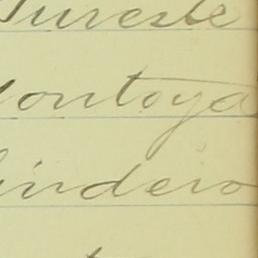 Tureste
Montoya
lindero